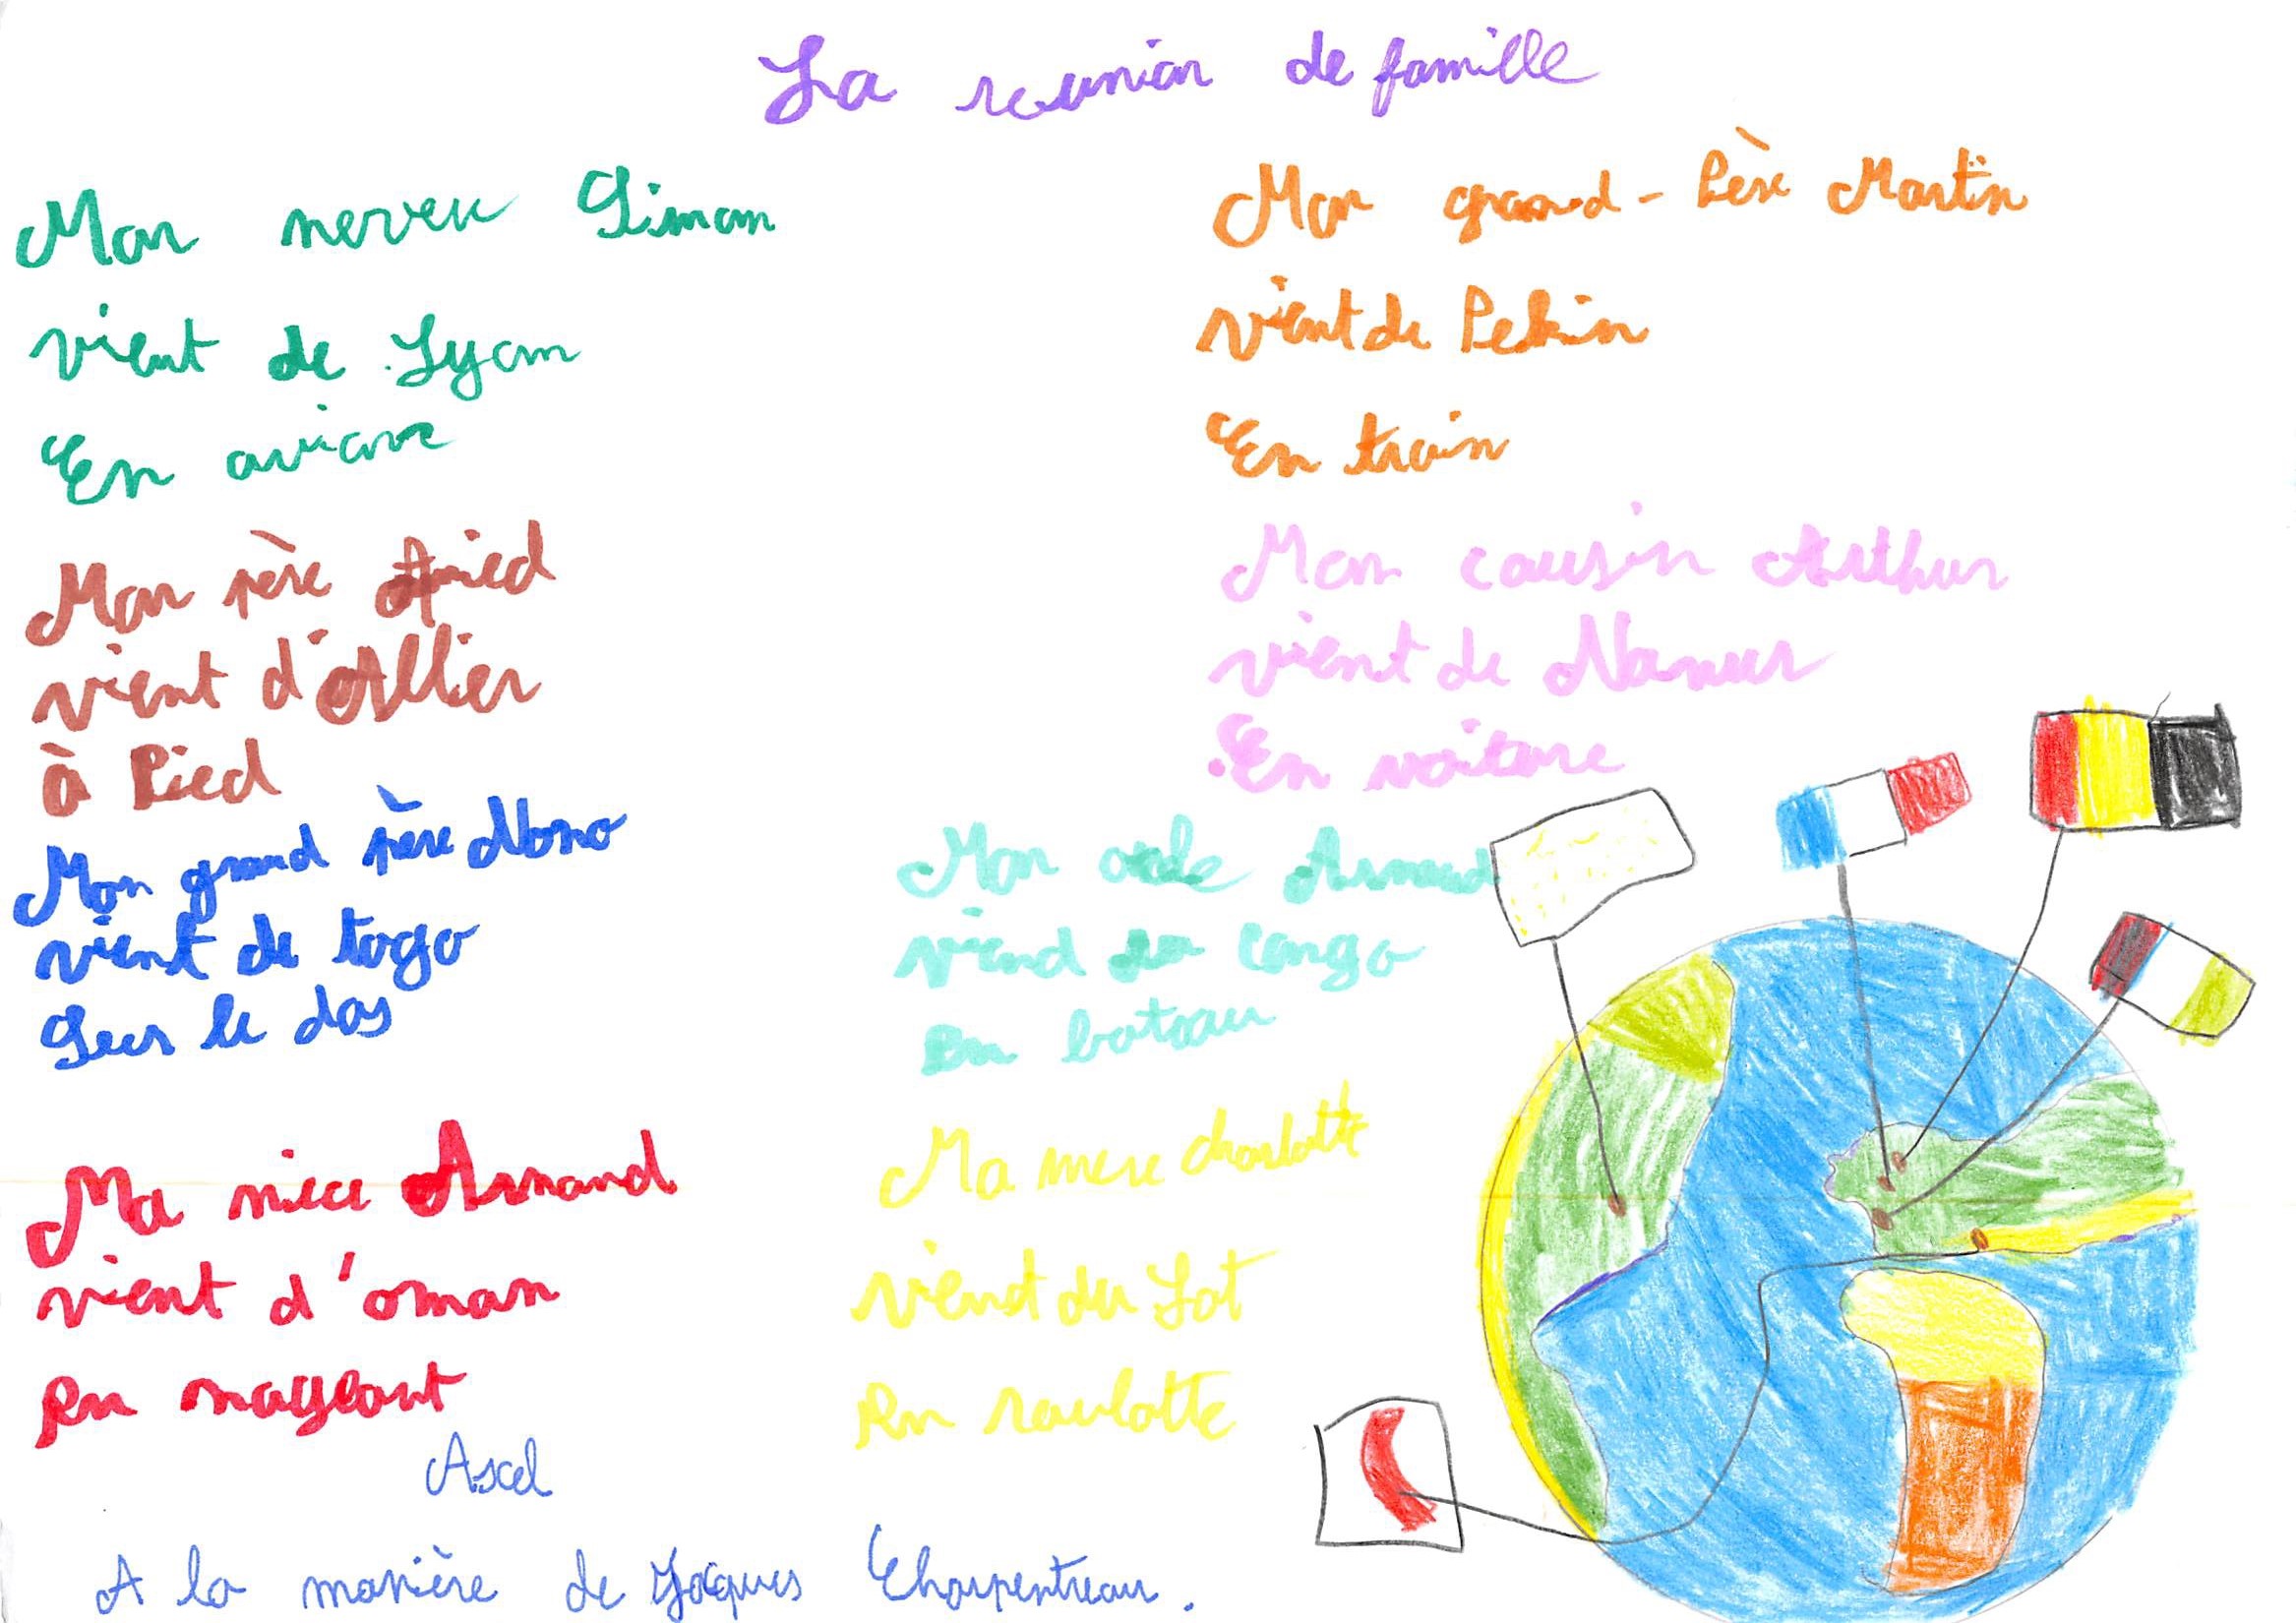 La reunion de famille
Mon neveu Simon
vient de Lyon
En avion
Mon père Amied
vient d'Allier
à Pied
Mon grand père Nono
vient de togo
Sur le dos
Ma niece Armand
vient d'oman
En nageant
Mon grand-Père Martin
vient de Pekin
En train
Mon cousin Arthur
vient de Namur
En voiture
Mon oncle Arnaud
viend du Congo
En bateau
Ma mere charlotte
viend du Lot
En roulotte
Axel
A la manière de Jacques Charpentreau.